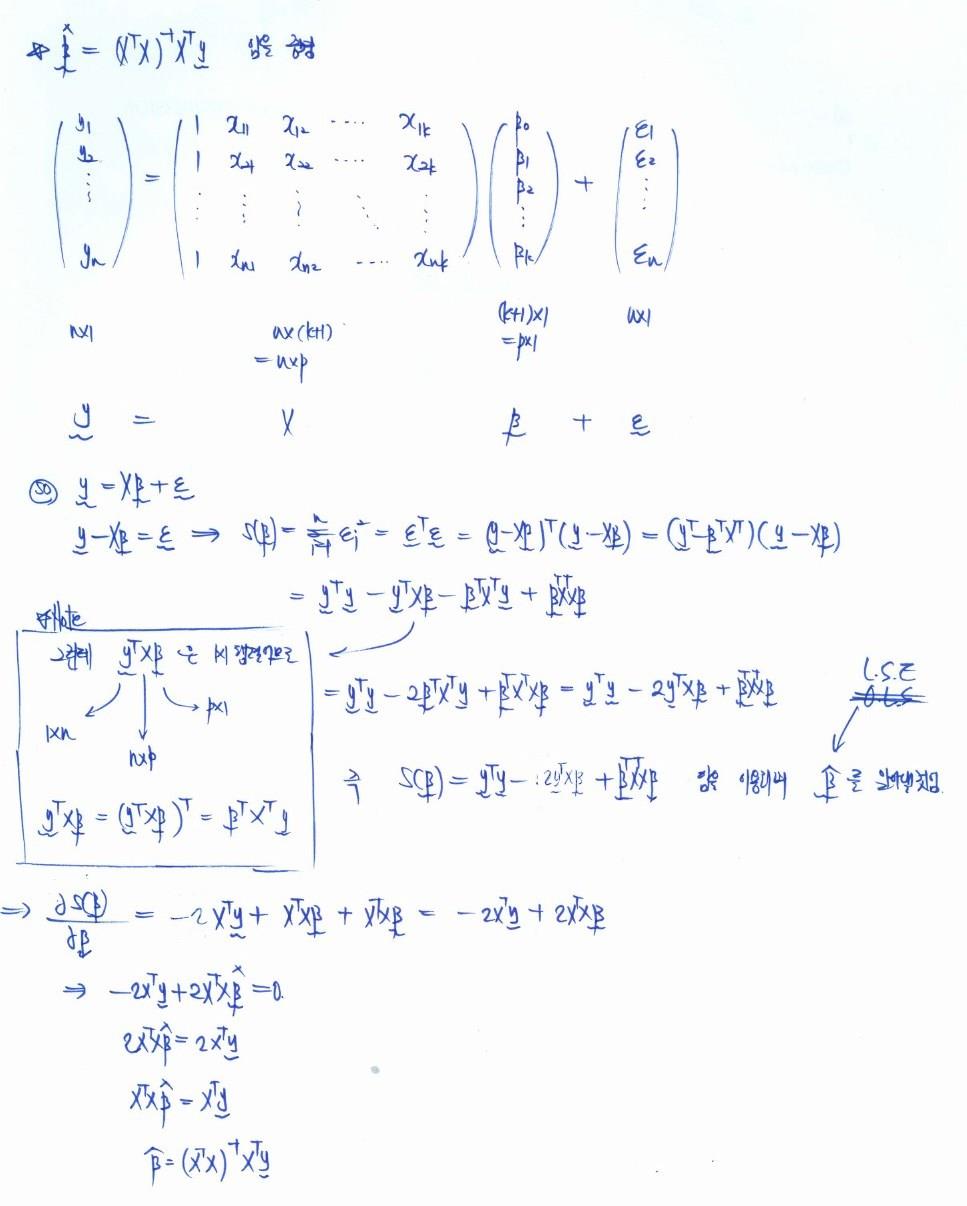 * β̂ = (XᵀX)⁻¹Xᵀy 임을 증명
( y₁ ) = ( 1 x₁₁ x₁₂ ---- x₁ₖ ) ( β₀ ) + ( ε₁ )
( y₂ ) ( 1 x₂₁ x₂₂ ---- x₂ₖ ) ( β₁ ) ( ε₂ )
( ⋮ ) ( ⋮ ⋮ ⋮ ⋱ ⋮ ) ( β₂ ⋮ ) ( ⋮ )
( yₙ ) ( 1 xₙ₁ xₙ₂ ---- xₙₖ ) ( βₖ ) ( εₙ )
n×1 n×(k+1) (k+1)×1 n×1
=n×p =p×1
y = X β + ε
so) y = Xβ + ε
y - Xβ = ε ⇒ S(β) = Σᵢ₌₁ⁿ εᵢ² = εᵀε = (y - Xβ)ᵀ(y - Xβ) = (yᵀ - βᵀXᵀ)(y - Xβ)
= yᵀy - yᵀXβ - βᵀXᵀy + βᵀXᵀXβ
*Note
그런데 yᵀXβ 은 1×1 행렬이므로
1×n n×p p×1
yᵀXβ = (yᵀXβ)ᵀ = βᵀXᵀy
= yᵀy - 2βᵀXᵀy + βᵀXᵀXβ = yᵀy - 2yᵀXβ + βᵀXᵀXβ
L.S.E
O.L.S
즉 S(β) = yᵀy - 2yᵀXβ + βᵀXᵀXβ 임을 이용하여 β̂ 를
⇒ ∂S(β)/∂β = -2Xᵀy + XᵀXβ + XᵀXβ = -2Xᵀy + 2XᵀXβ
⇒ -2Xᵀy + 2XᵀXβ̂ = 0.
2XᵀXβ̂ = 2Xᵀy
XᵀXβ̂ = Xᵀy
β̂ = (XᵀX)⁻¹Xᵀy